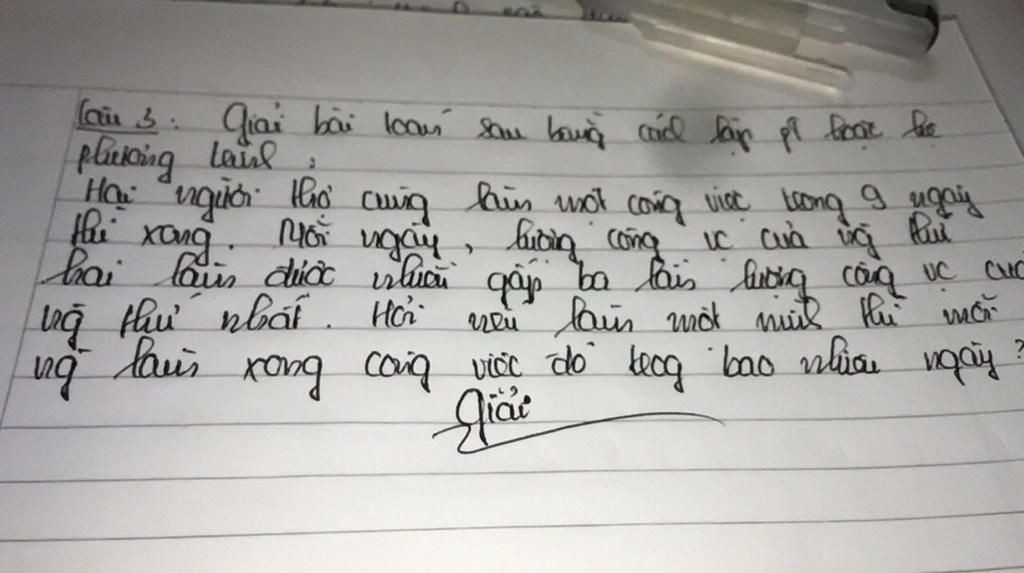 Câu 3: Giải bài toán sau bằng cách lập pt hoặc hệ
phương trình:
Hai người thợ cùng làm một công việc trong 9 ngày
thì xong. Mỗi ngày, lượng công vc của ng thứ
hai làm được nhiều gấp ba lần lượng công vc của
ng thứ nhất. Hỏi nếu làm một mình thì mỗi
ng làm xong công việc đó trong bao nhiêu ngày?
Giải